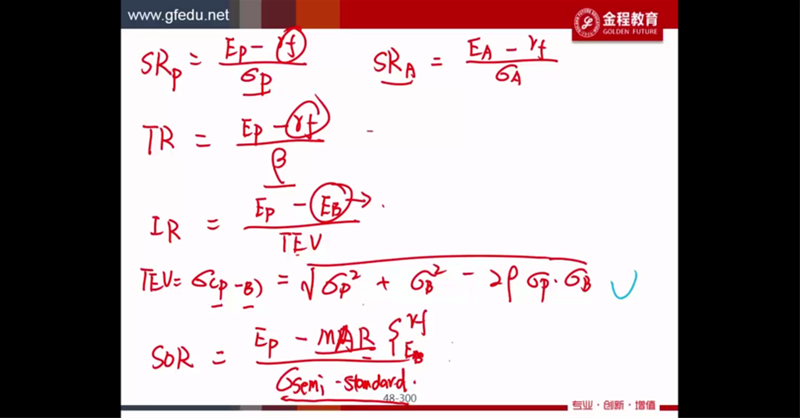 www.gfedu.net 金程教育
GOLDEN FUTURE
SR_P = (E_P - r_f) / σ_P    SR_A = (E_A - r_f) / σ_A
TR = (E_P - r_f) / β
IR = (E_P - E_B) → / TEV
TEV = σ(P-B) = √(σ_P² + σ_B² - 2ρ σ_P · σ_B)
SOR = (E_P - MAR { r_f E_B) / σ_semi-standard.
48-300
专业·创新·增值